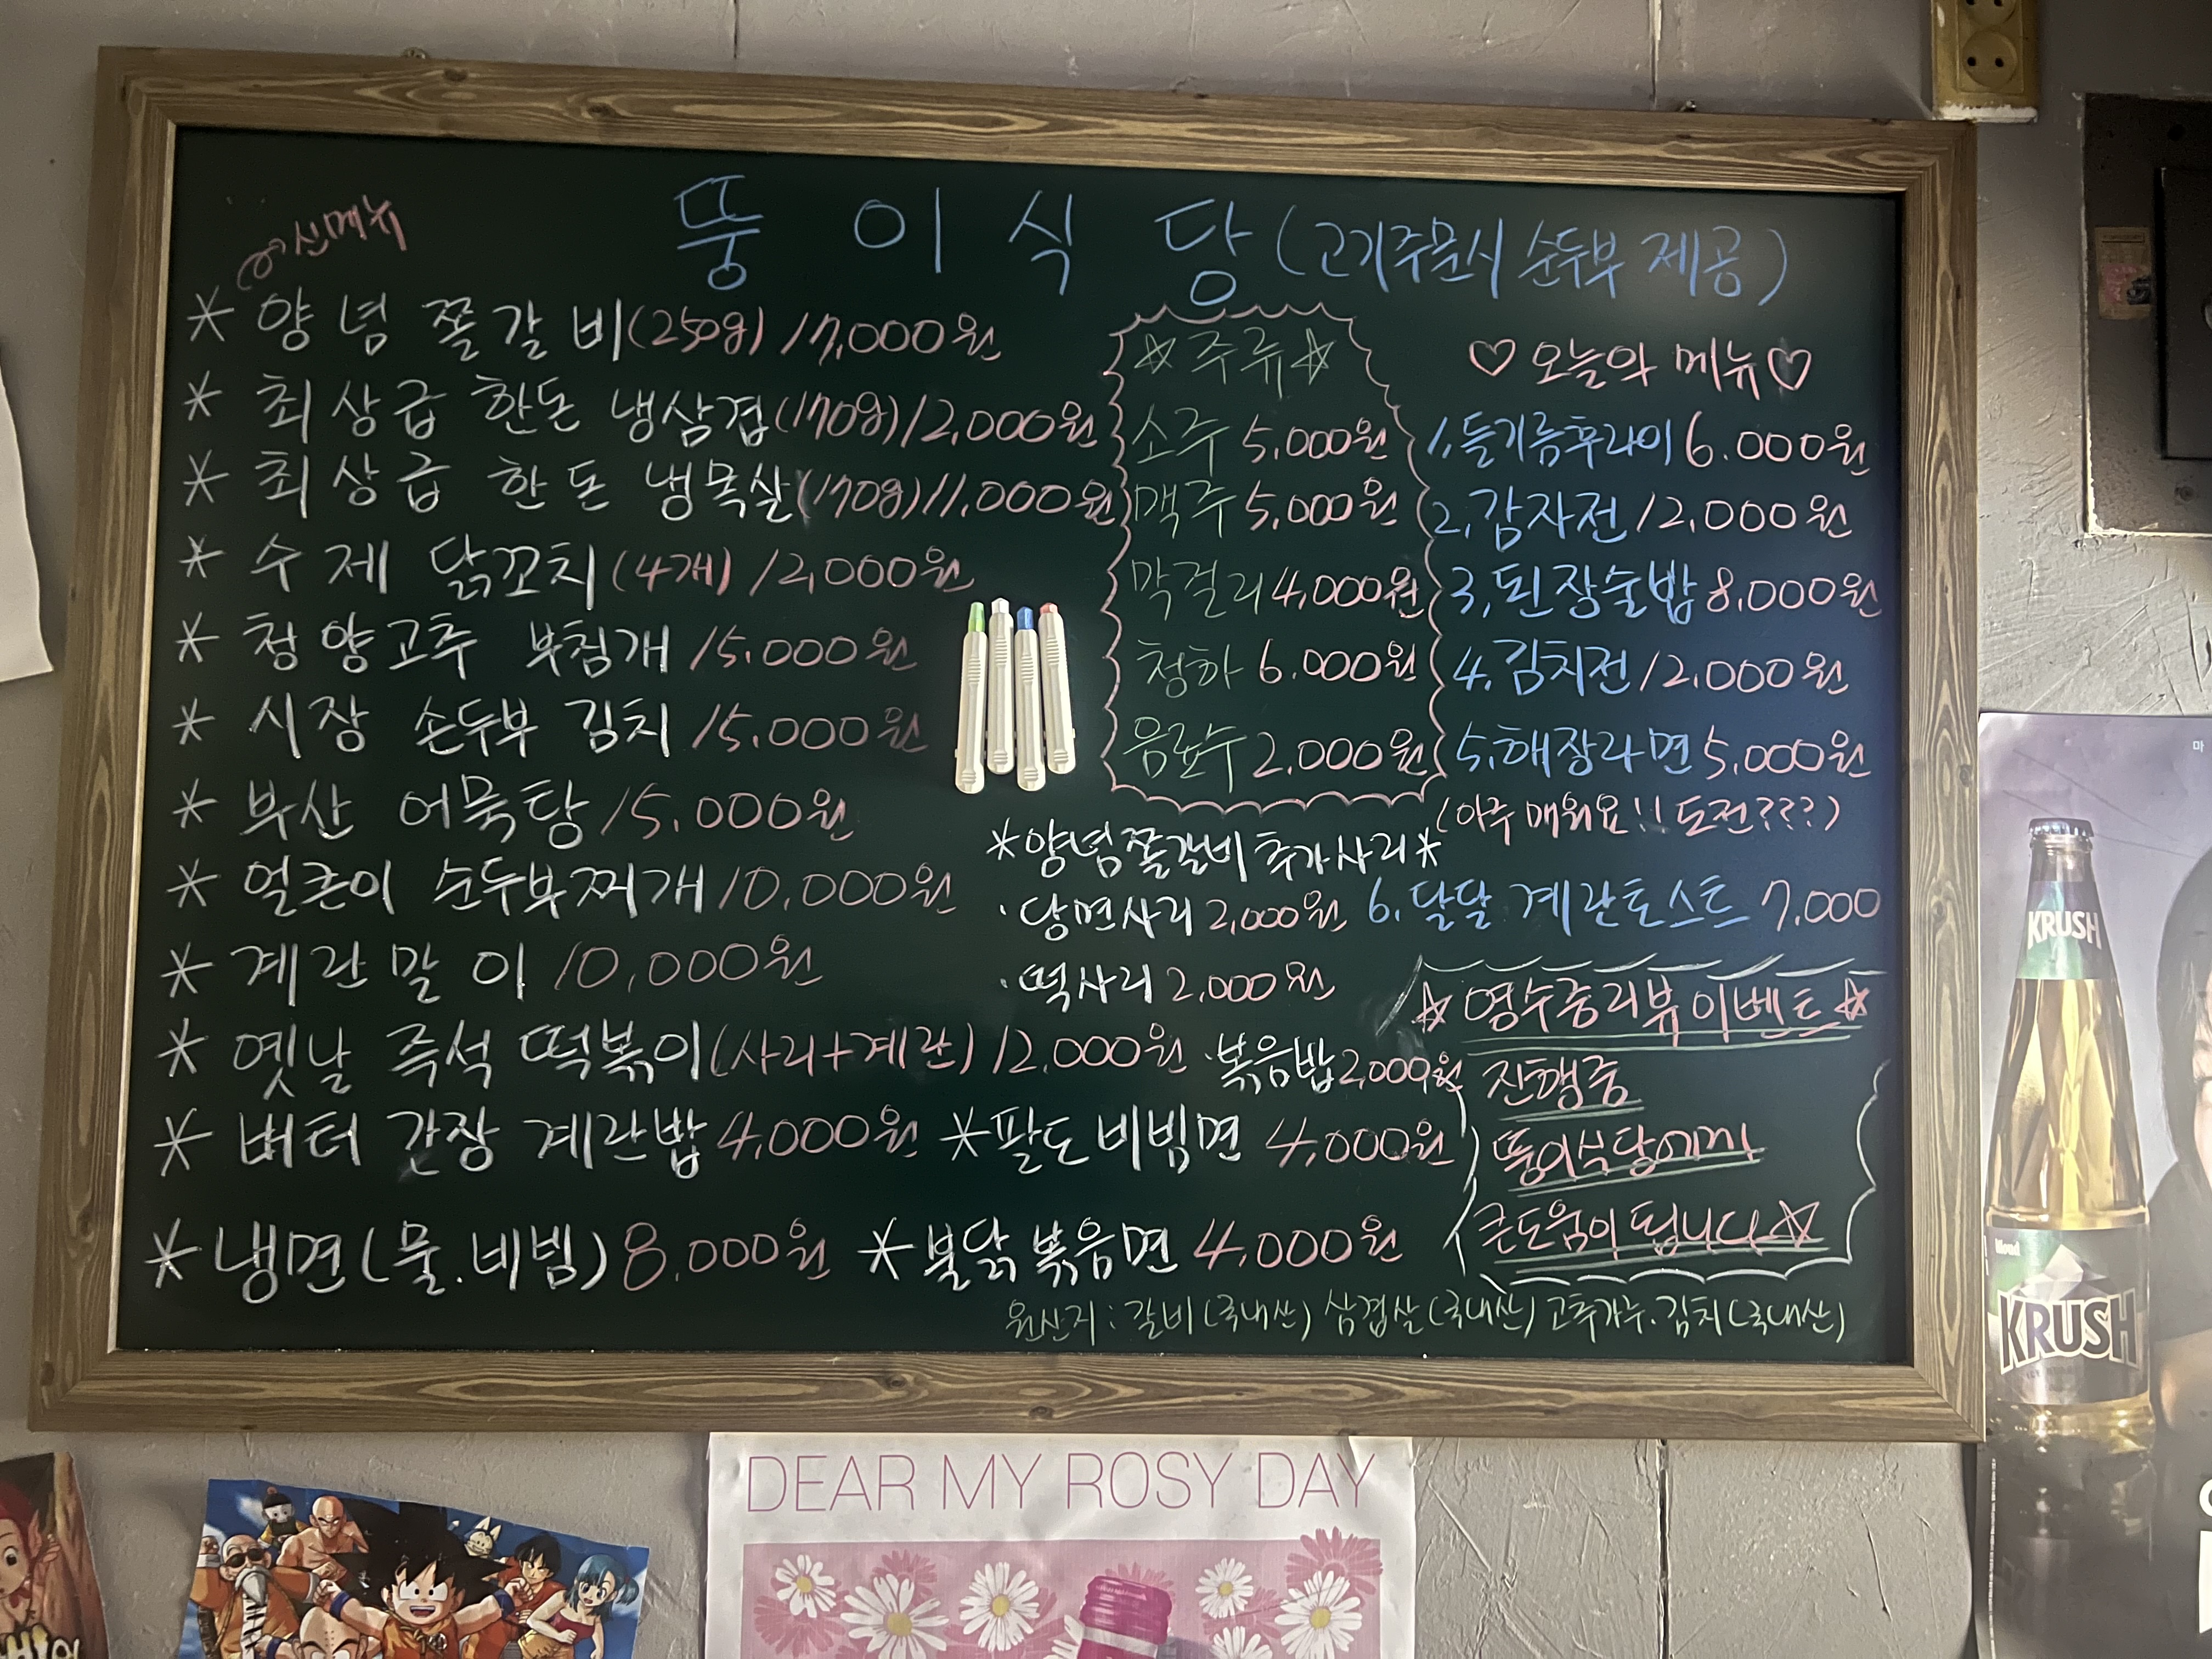 신메뉴
뚱이식당 (고기주문시 순두부 제공)
* 양념 쫄갈비 (250g) 17,000원
* 최상급 한돈 냉삼겹 (170g) 12,000원
* 최상급 한돈 냉목살 (170g) 11,000원
* 수제 닭꼬치 (4개) 12,000원
* 청양고추 부침개 15,000원
* 시장 손두부 김치 15,000원
* 부산 어묵탕 15,000원
* 얼큰이 순두부찌개 10,000원
* 계란말이 10,000원
* 옛날 즉석 떡볶이 (사리+계란) 12,000원
* 버터 간장 계란밥 4,000원
* 팔도비빔면 4,000원
* 냉면 (물.비빔) 8,000원
* 불닭볶음면 4,000원
☆주류☆
소주 5,000원
맥주 5,000원
막걸리 4,000원
청하 6,000원
음료수 2,000원
*양념쫄갈비 추가사리*
· 당면사리 2,000원
· 떡사리 2,000원
· 볶음밥 2,000원
♡오늘의 메뉴♡
1. 들기름후라이 6.000원
2. 감자전 12,000원
3. 된장술밥 8,000원
4. 김치전 12,000원
5. 해장라면 5,000원
(아주 매워요!! 도전???)
6. 달달 계란토스트 7,000
☆ 영수증리뷰이벤트 ☆
진행중
뚱이식당에게
큰도움이 됩니다☆
원산지 : 갈비(국내산) 삼겹살(국내산) 고추가루.김치(국내산)
KRUSH
KRUSH
DEAR MY ROSY DAY